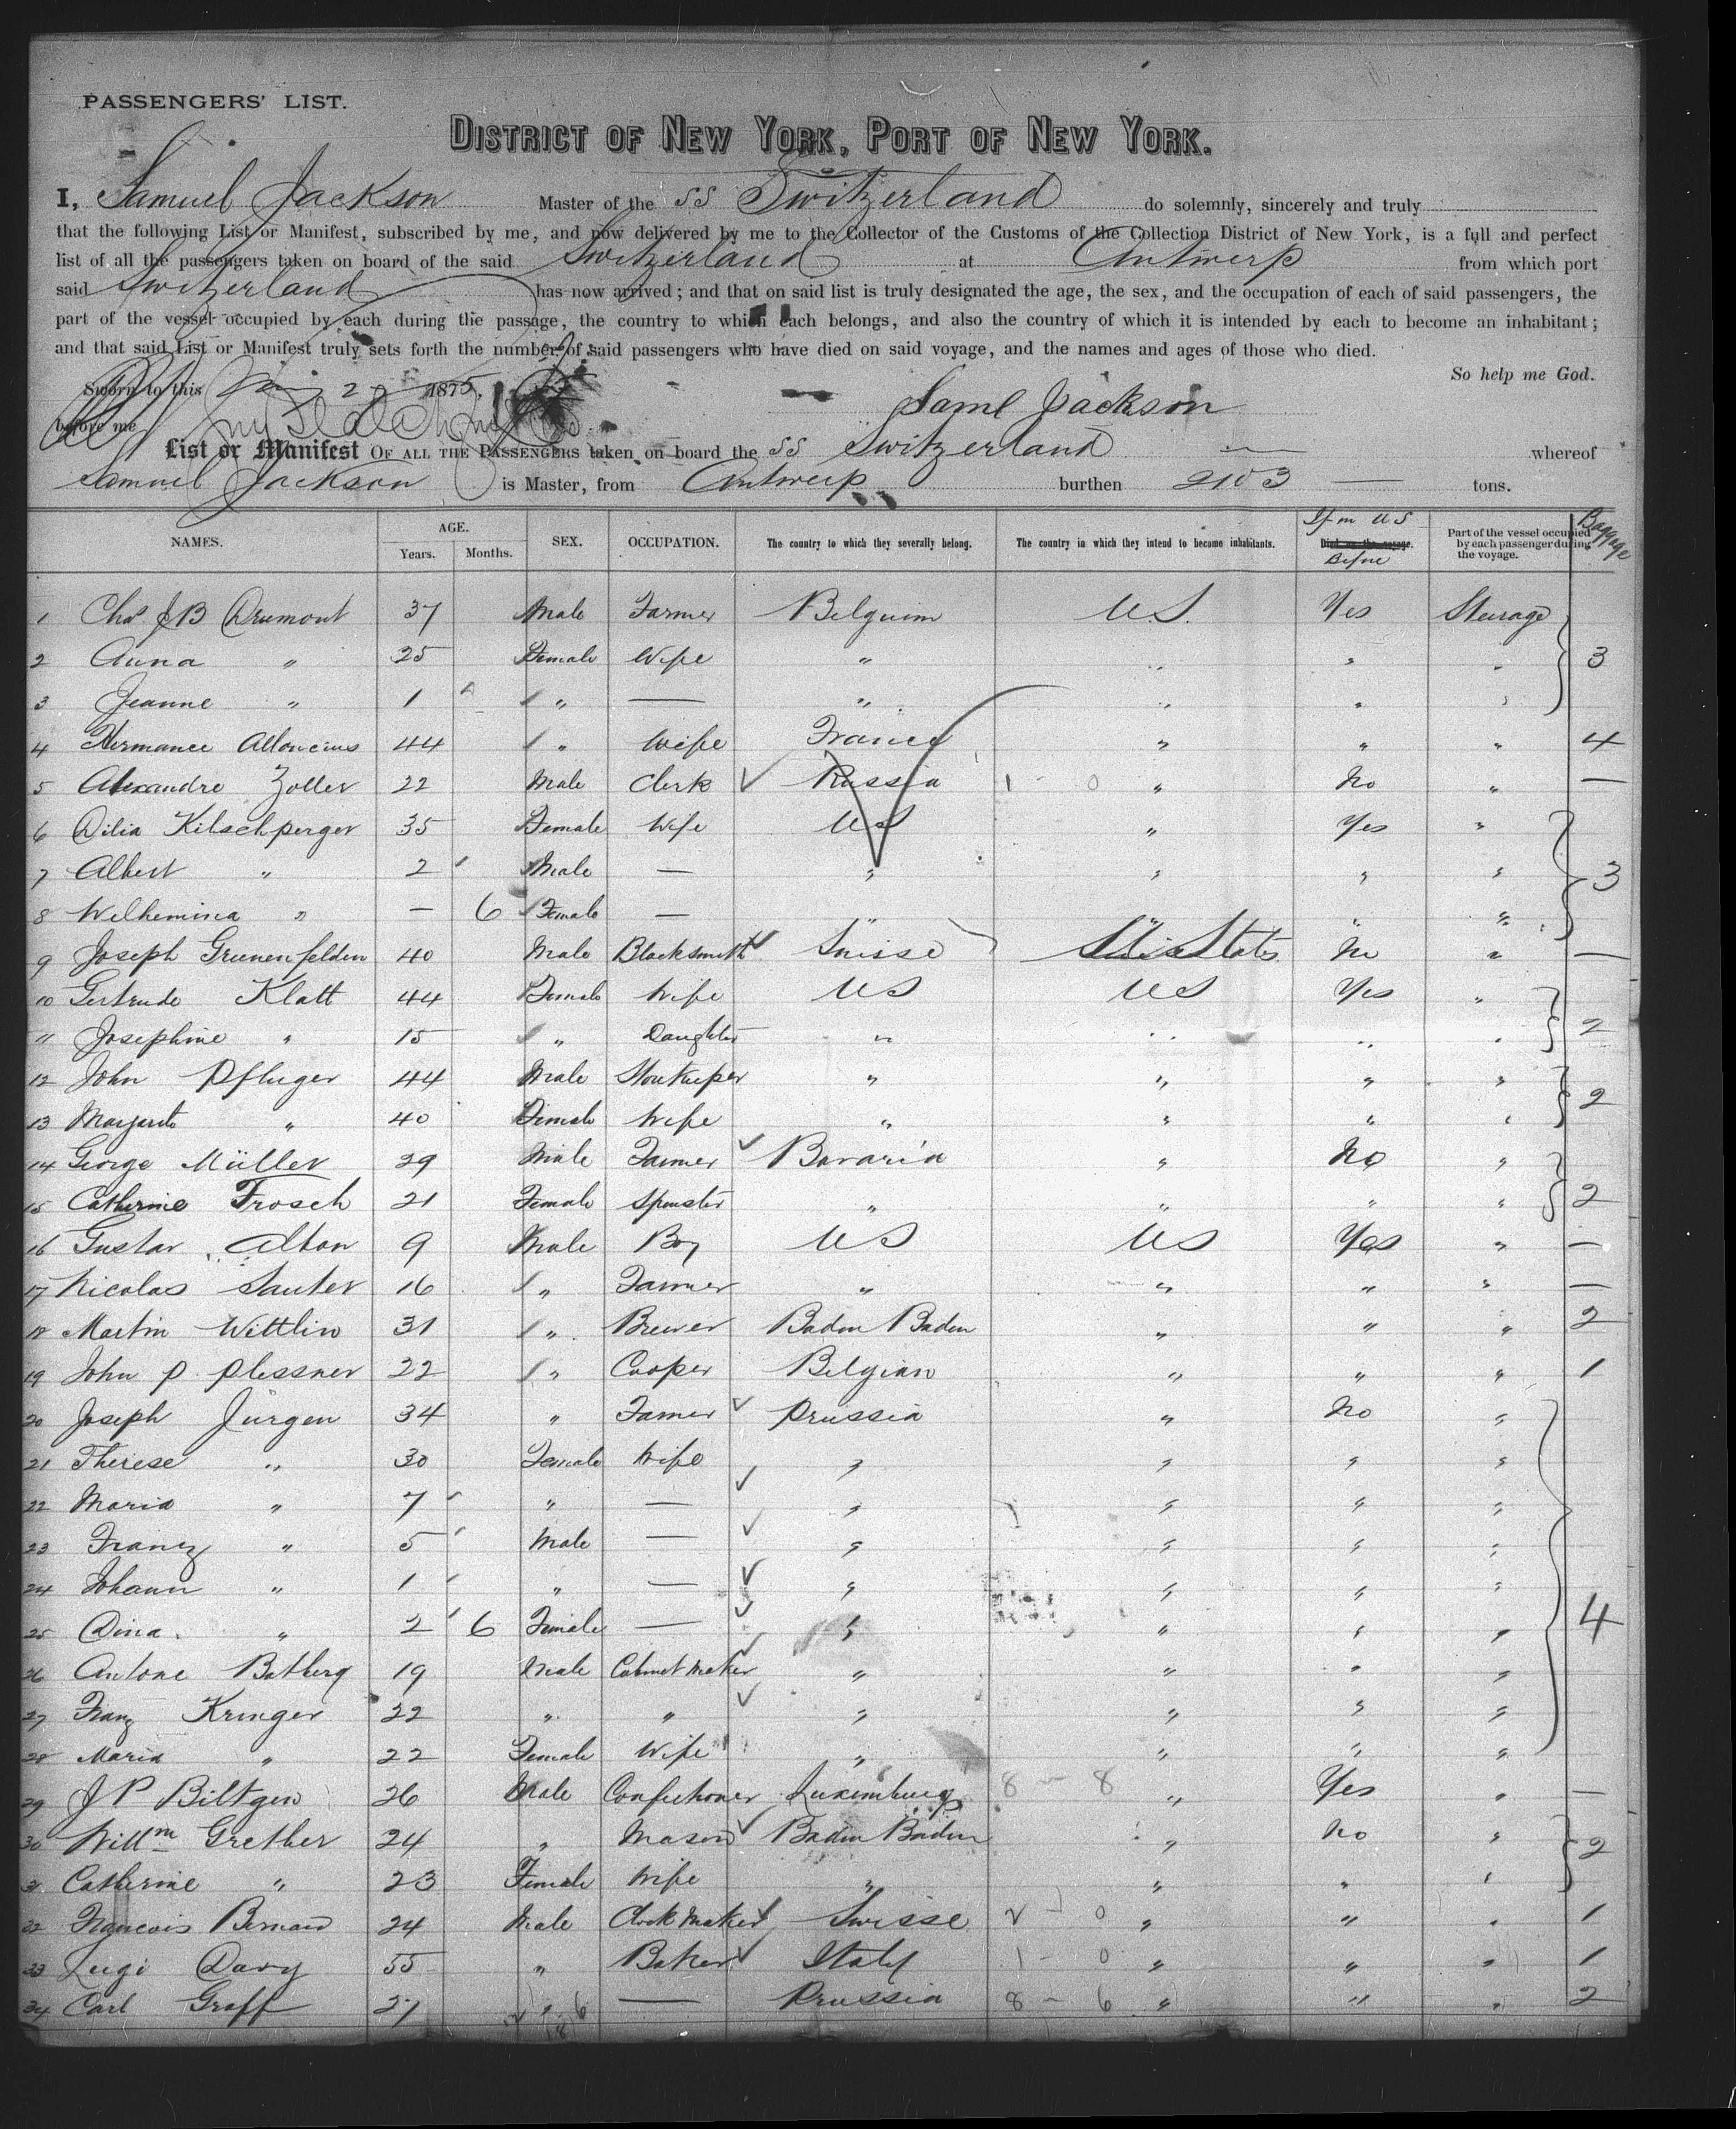 PASSENGERS' LIST.
DISTRICT OF NEW YORK, PORT OF NEW YORK.
I, Samuel Jackson Master of the SS Switzerland do solemnly, sincerely and truly
that the following List or Manifest, subscribed by me, and now delivered by me to the Collector of the Customs of the Collection District of New York, is a full and perfect
list of all the passengers taken on board of the said Switzerland at Antwerp from which port
said Switzerland has now arrived; and that on said list is truly designated the age, the sex, and the occupation of each of said passengers, the
part of the vessel occupied by each during the passage, the country to which each belongs, and also the country of which it is intended by each to become an inhabitant;
and that said List or Manifest truly sets forth the number of said passengers who have died on said voyage, and the names and ages of those who died.
So help me God.
Sworn to this 1875.
before me
Saml Jackson
List or Manifest OF ALL THE PASSENGERS taken on board the SS Switzerland whereof
Samuel Jackson is Master, from Antwerp burthen 2103 tons.
NAMES. AGE. Years. Months. SEX. OCCUPATION. The country to which they severally belong. The country in which they intend to become inhabitants. If in US Died on the voyage. Before Part of the vessel occupied by each passenger during the voyage. Baggage
1 Chas J B Drumont 37 Male Farmer Belguim U.S. Yes Steurage
2 Anna " 25 Female Wife " " " " 3
3 Jeanne " 1 " — " " " "
4 Hermance 44 " Wife France " " " 4
5 Alexandre Zoller 22 Male Clerk Russia 1 - 0 " No " —
6 Dilia Kilschperger 35 Female Wife US " Yes "
7 Albert " 2 Male — " " " " 3
8 Welhemina " — 6 Female — " " " "
9 Joseph Grunenfelden 40 Male Blacksmith Suisse States No " —
10 Gertrude Klatt 44 Female Wife US US Yes "
11 Josephine " 15 " Daughter " " " " 2
12 John Pfluger 44 Male Storekeeper " " " "
13 Margarete " 40 Female Wife " " " " 2
14 George Müller 29 Male Farmer Bavaria " No "
15 Catherine Frosch 21 Female Spinster " " " " 2
16 Gustav Alton 9 Male Boy US US Yes " —
17 Nicolas Sauter 16 " Farmer " " " " —
18 Martin Wittlin 31 " Brewer Baden Baden " " " 2
19 John P. Plessner 22 " Cooper Belgian " " " 1
20 Joseph Jürgen 34 " Famer Prussia " No "
21 Therese " 30 Female Wife " " " "
22 Maria " 7 " — " " " "
23 Franz " 5 Male — " " " "
24 Johann " 1 " — " " " "
25 Dina " 2 6 Female — " " " " 4
26 Antone Batberg 19 Male Cabinet maker " " " "
27 Franz Kringer 22 " " " " " "
28 Maria " 22 Female Wife " " " "
29 J P Biltgen 26 Male Confectioner Luxemburg 8 - 8 " Yes " —
30 Willm Grether 24 " Mason Baden Baden " No "
31 Catherine " 23 Female Wife " " " " 2
32 Francois Bernard 24 Male Clock Maker Swisse 2 - 0 " " " 1
33 Luigi Davy 55 " Baker Italy 1 - 0 " " " 1
34 Carl Graff 27 " — Prussia 8 - 6 " " " 2